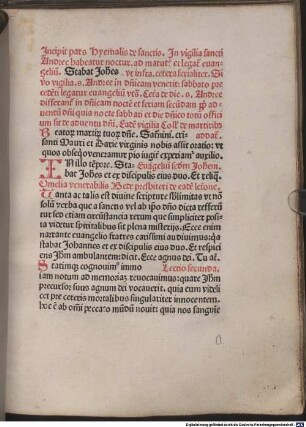 Incipit pars hyemalis de sanctis. In vigilia sancti
Andree habeatur noctur. ad matuti. et legat' euan-
geliū. Stabat Johēs. vt infra. cetera ferialiter. Si
vo vigilia. s. Andree in dn̄icam venerit: sabbato pre
cedēti legatur euangeliū vt s̄. Cela de die. s. Andree
differat' in dn̄icam nocte et feriam secūdam p' ad
uentū dn̄i quia nocte sabbati et die dn̄ico totū offici
um fit de aduentu dn̄i. Eadē vigilia Coll' de martirib'
Beatorum martirum tuorum dn̄e. Saturnini. cri addat'.
santi Mauri et Darie virginis nobis assit oratio: vt
quos obsequio veneramur pio iugiter experiamur auxilio.
In illo tēpore. Sta- Euangeliū scdm Johem.
bat Johes et ex discipulis eius duo. Et reliq.
Omelia venerabilis Bede presbiteri de eadē lectione.
Tanta ac talis est diuine scripture sublimitas vt nō
solū verba que a sanctis vel ab ipo dn̄o dicta refert̄ur
sed etiam circūstantia rerum que simpliciter posi-
ta videtur spiritalibus sit plena misteriis. Ecce enim
narrante euangelio fratres carissimi audiuimus: quia
stabat Johannes et ex discipulis eius duo. Et respici
ens Jhm ambulantem: dicit. Ecce agnus dei. Tu aut.
Statimque cognouimus immo Lectio secunda.
iam notum ad memoriam reuocauimus: quare Jhm
precursor suus agnum dei vocauerit. quia eum videli
cet pre ceteris mortalibus singulariter innocentem.
hoc ē ab omni peccato mūdū nouit: quia nos sanguine